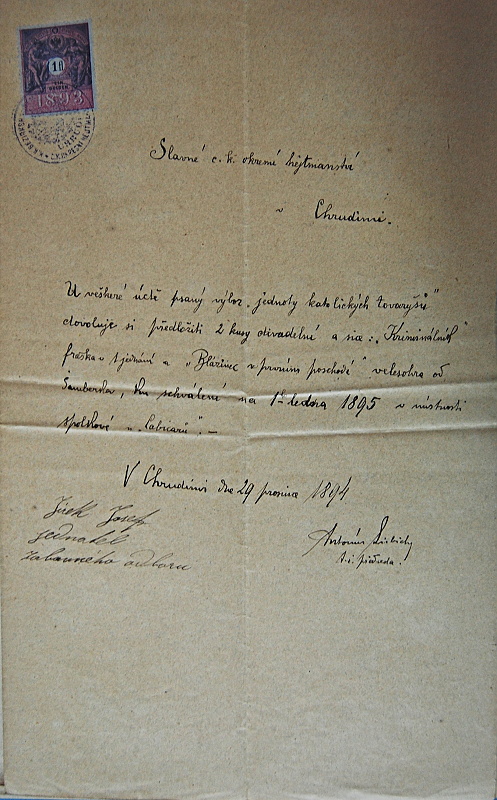 1 fl
1893
CHRUDIM
Slavné c. k. okresní hejtmanství
v Chrudimi.
U veškeré úctě psaný výbor „jednoty katolických tovaryšů"
dovoluje si předložiti 2 kusy divadelní a sice: „Kriminálník"
fraška v 1 jednání a „Blázinec v prvním poschodí" veselohra od
Šamberka, ku schválení na 1. ledna 1895 v místnosti
spolkové u „Labutě". —
V Chrudimi dne 29 prosince 1894
Josef
jednatel
zábavného odboru
Antonín
t. č. předseda.